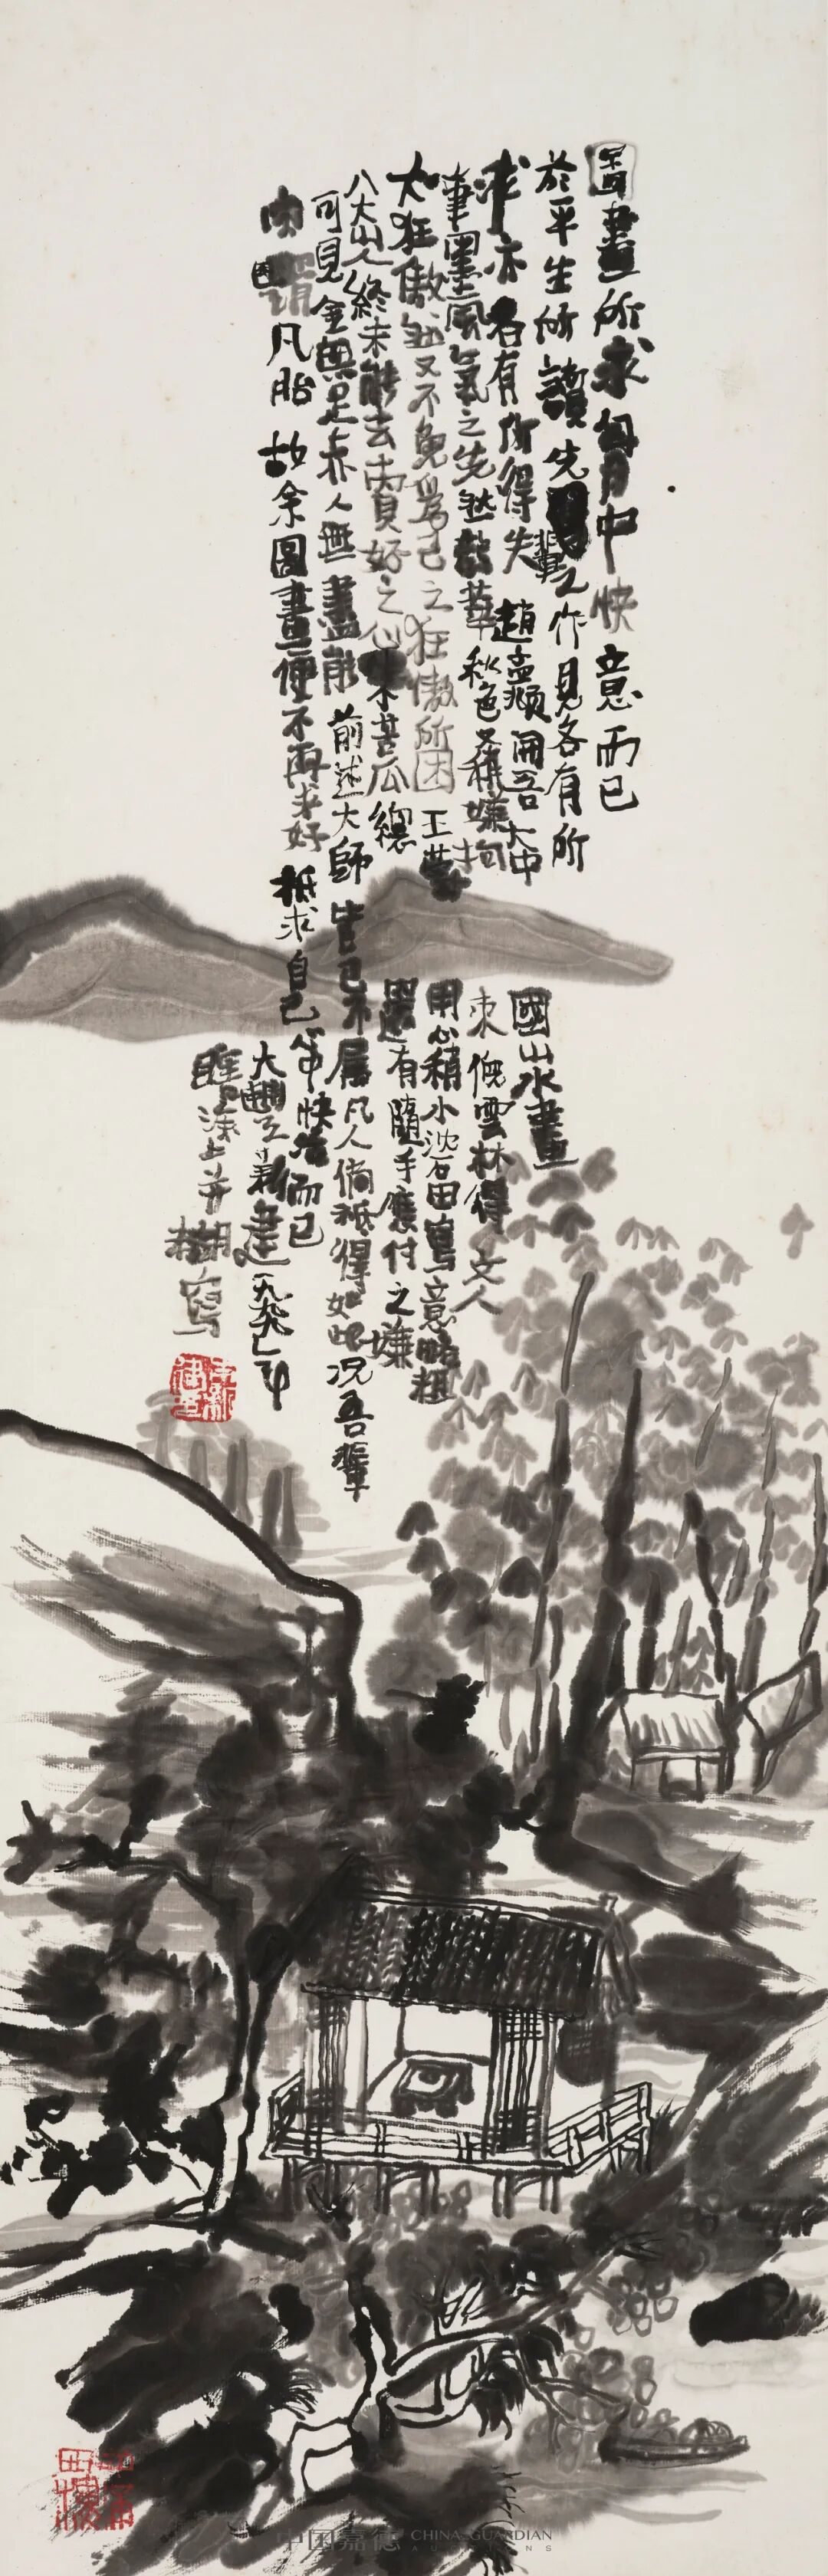 圖畫所求胷中快意而已
於平生所讀先輩之作見各有所
求亦各有所得失趙孟頫開吾大中國山水畫
筆墨風氣之先然鵲華秋色又稍嫌拘束倪雲林得文人
太狂傲然又不免爲己之狂傲所困王蒙用心稍小沈石田寫意略粗
八大山人終未能去賣好之心朱苦瓜總還有隨手應付之嫌
可見金無足赤人無盡能前述大師皆已不屬凡人倘祇得如此況吾輩
肉凡胎故余圖畫便不再求好祇求自己筆快活而已
大豐王新建一九九九己卯
上并寫
中国嘉德 CHINA GUARDIAN
AUCTIONS